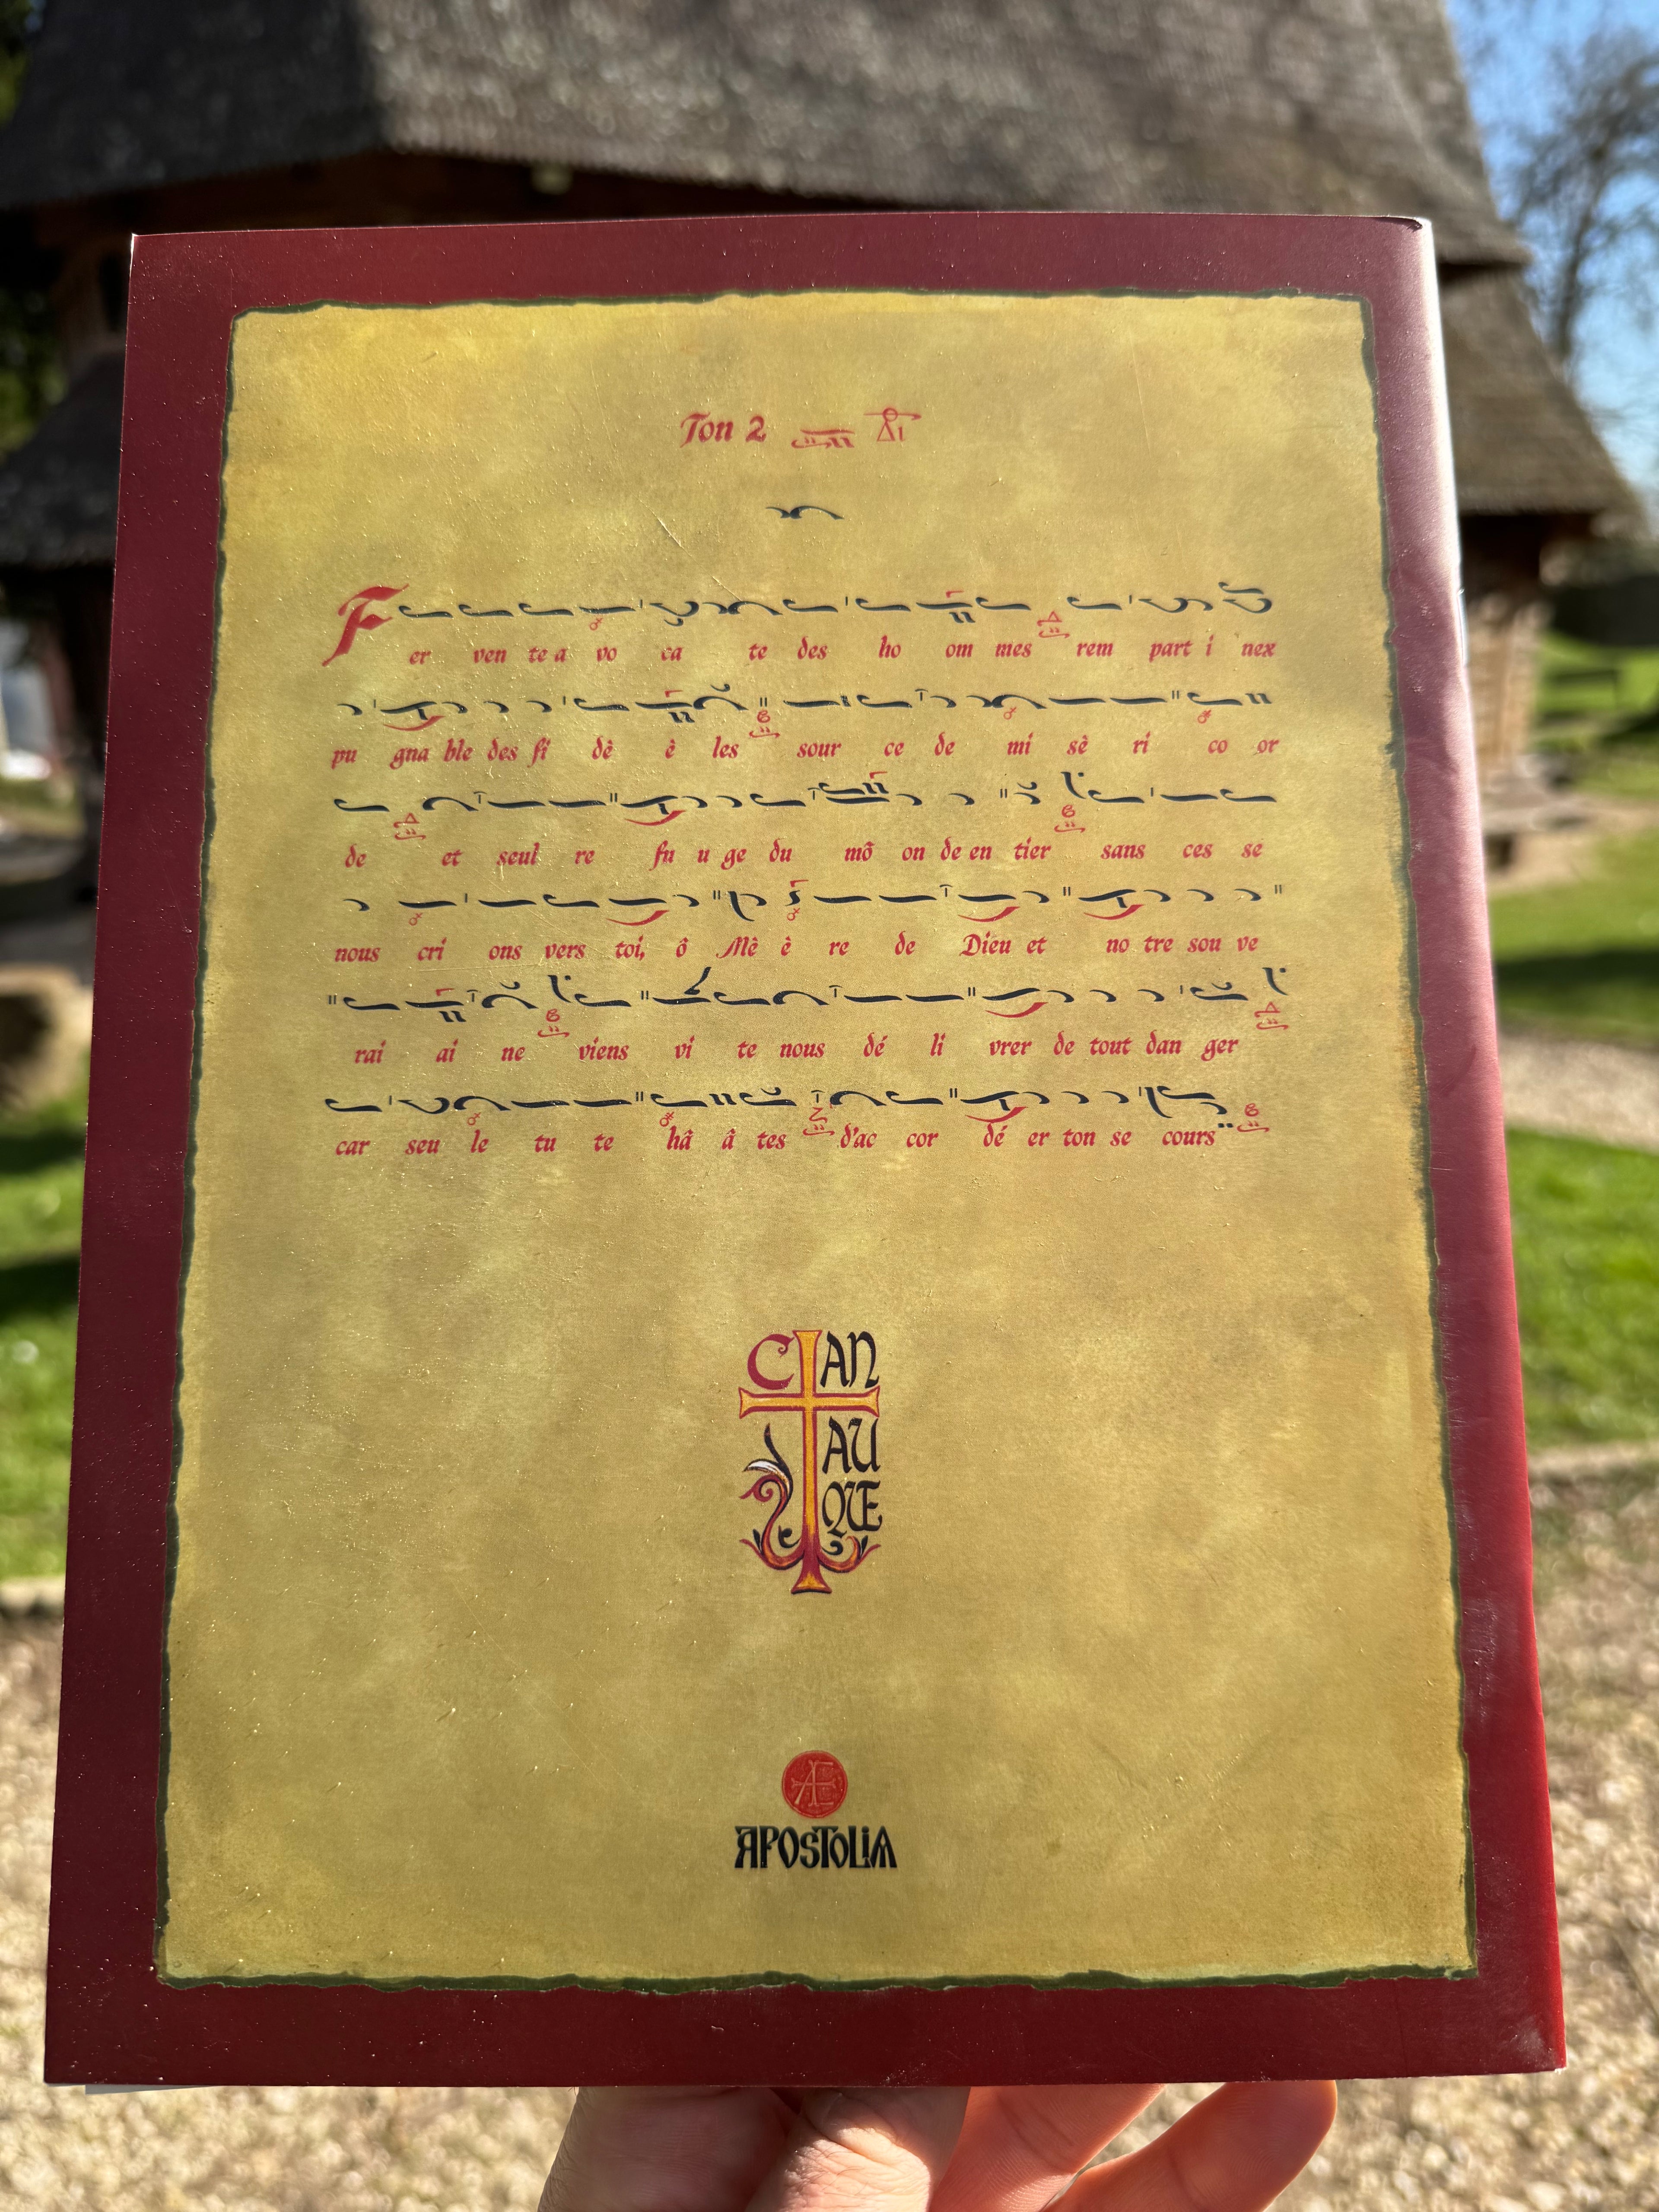 Ton 2 Δι
Fer ven te a vo ca te des ho om mes Δ rem part i nex
pu gna ble des fi dè è les Β sour ce de mi sè ri co or
de Δ et seul re fu u ge du mô on de en tier Β sans ces se
nous cri ons vers toi, ô Mè è re de Dieu et no tre sou ve
rai ai ne Β viens vi te nous dé li vrer de tout dan ger Δ
car seu le tu te hâ â tes Ζ d'ac cor dé er ton se cours Β
CAN
AU
QUE
Æ
APOSTOLIA